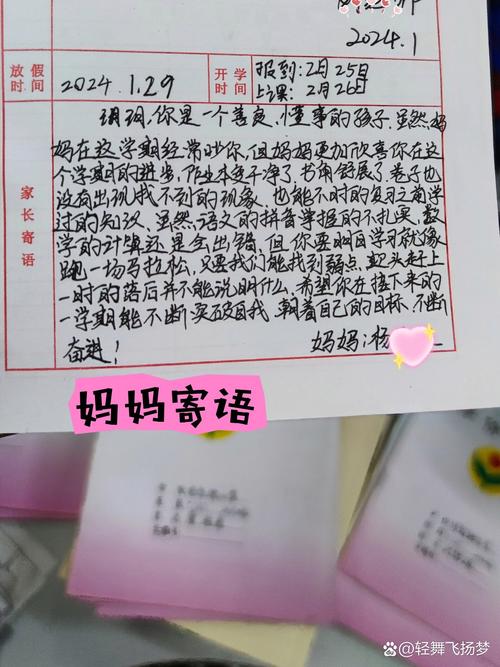 2024.1
放假时间
2024.1.29
开学时间
报到:2月25日
上课:2月26日
家长寄语
玥玥,你是一个善良、懂事的孩子.虽然妈
妈在这学期经常吵你,但妈妈更加欣喜你在这
个学期的进步,作业本变干净了.书角舒展了.卷子也
没有出现找不到的现象,也能不时的复习之前学
过的知识、虽然语文的拼音掌握的不扎实,数
学的计算还是会出错,但你要明白学习就像
跑一场马拉松,只要我们能找到弱点,迎头赶上
一时的落后并不能说明什么,希望你在接下来的
一学期能不断突破自我,朝着自己的目标,不断
奋进!
妈妈:杨
妈妈寄语
@轻舞飞扬梦